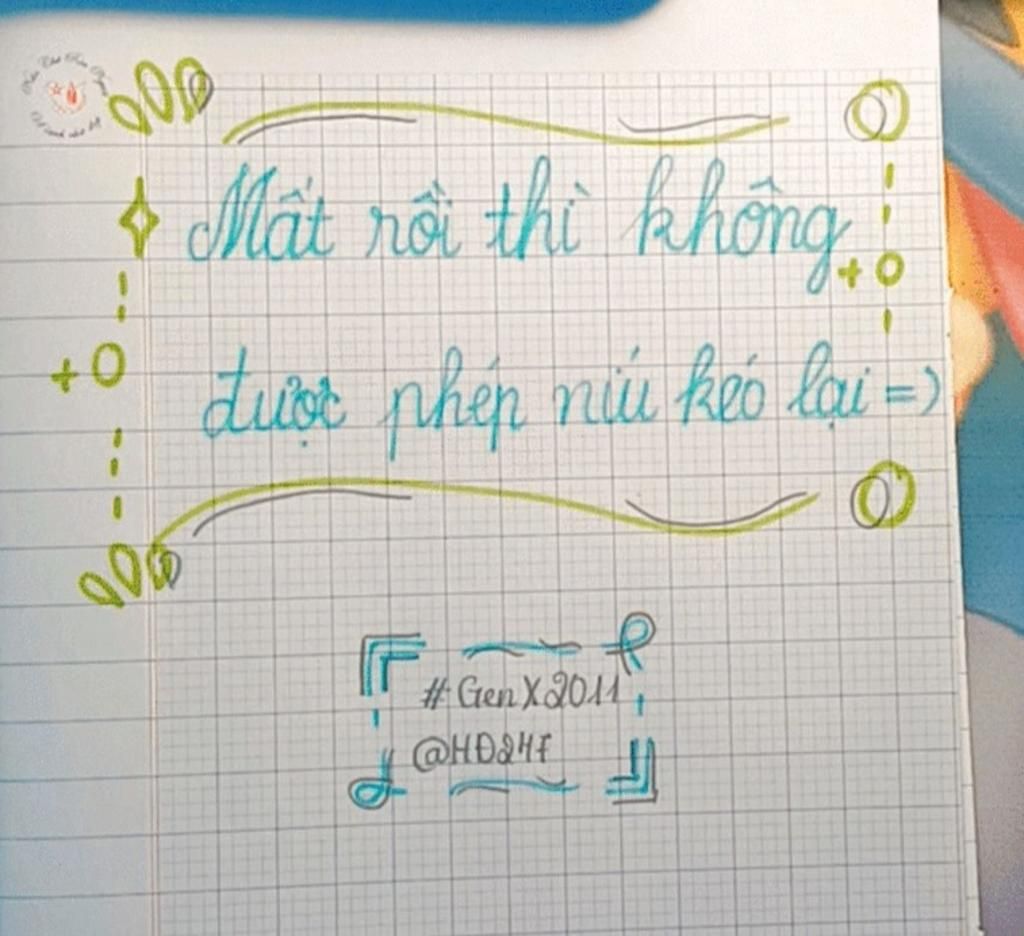 Mất rồi thì không
được phép níu kéo lại =)
#GenX2011
@HĐ24F